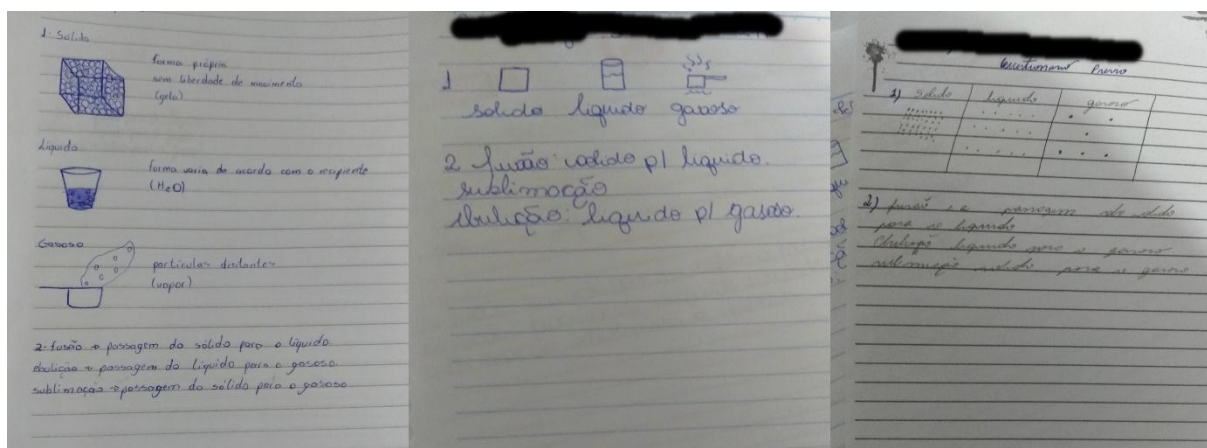 1- Sólido
forma própria
sem liberdade de movimento
(gelo)
Líquido
forma varia de acordo com o recipiente
(H2O)
Gasoso
partículas distantes
(vapor)
2- fusão → passagem do sólido para o líquido
ebulição → passagem do líquido para o gasoso
sublimação → passagem do sólido para o gasoso
1
solido liquido gasoso
2 fusão: solido p/ liquido.
sublimação
ebulição: liquido p/ gasoso.
1) solido liquido gasoso
2) fusão é a passagem do
para o liquido
liquido para o gasoso
sublimação solido para o gasoso